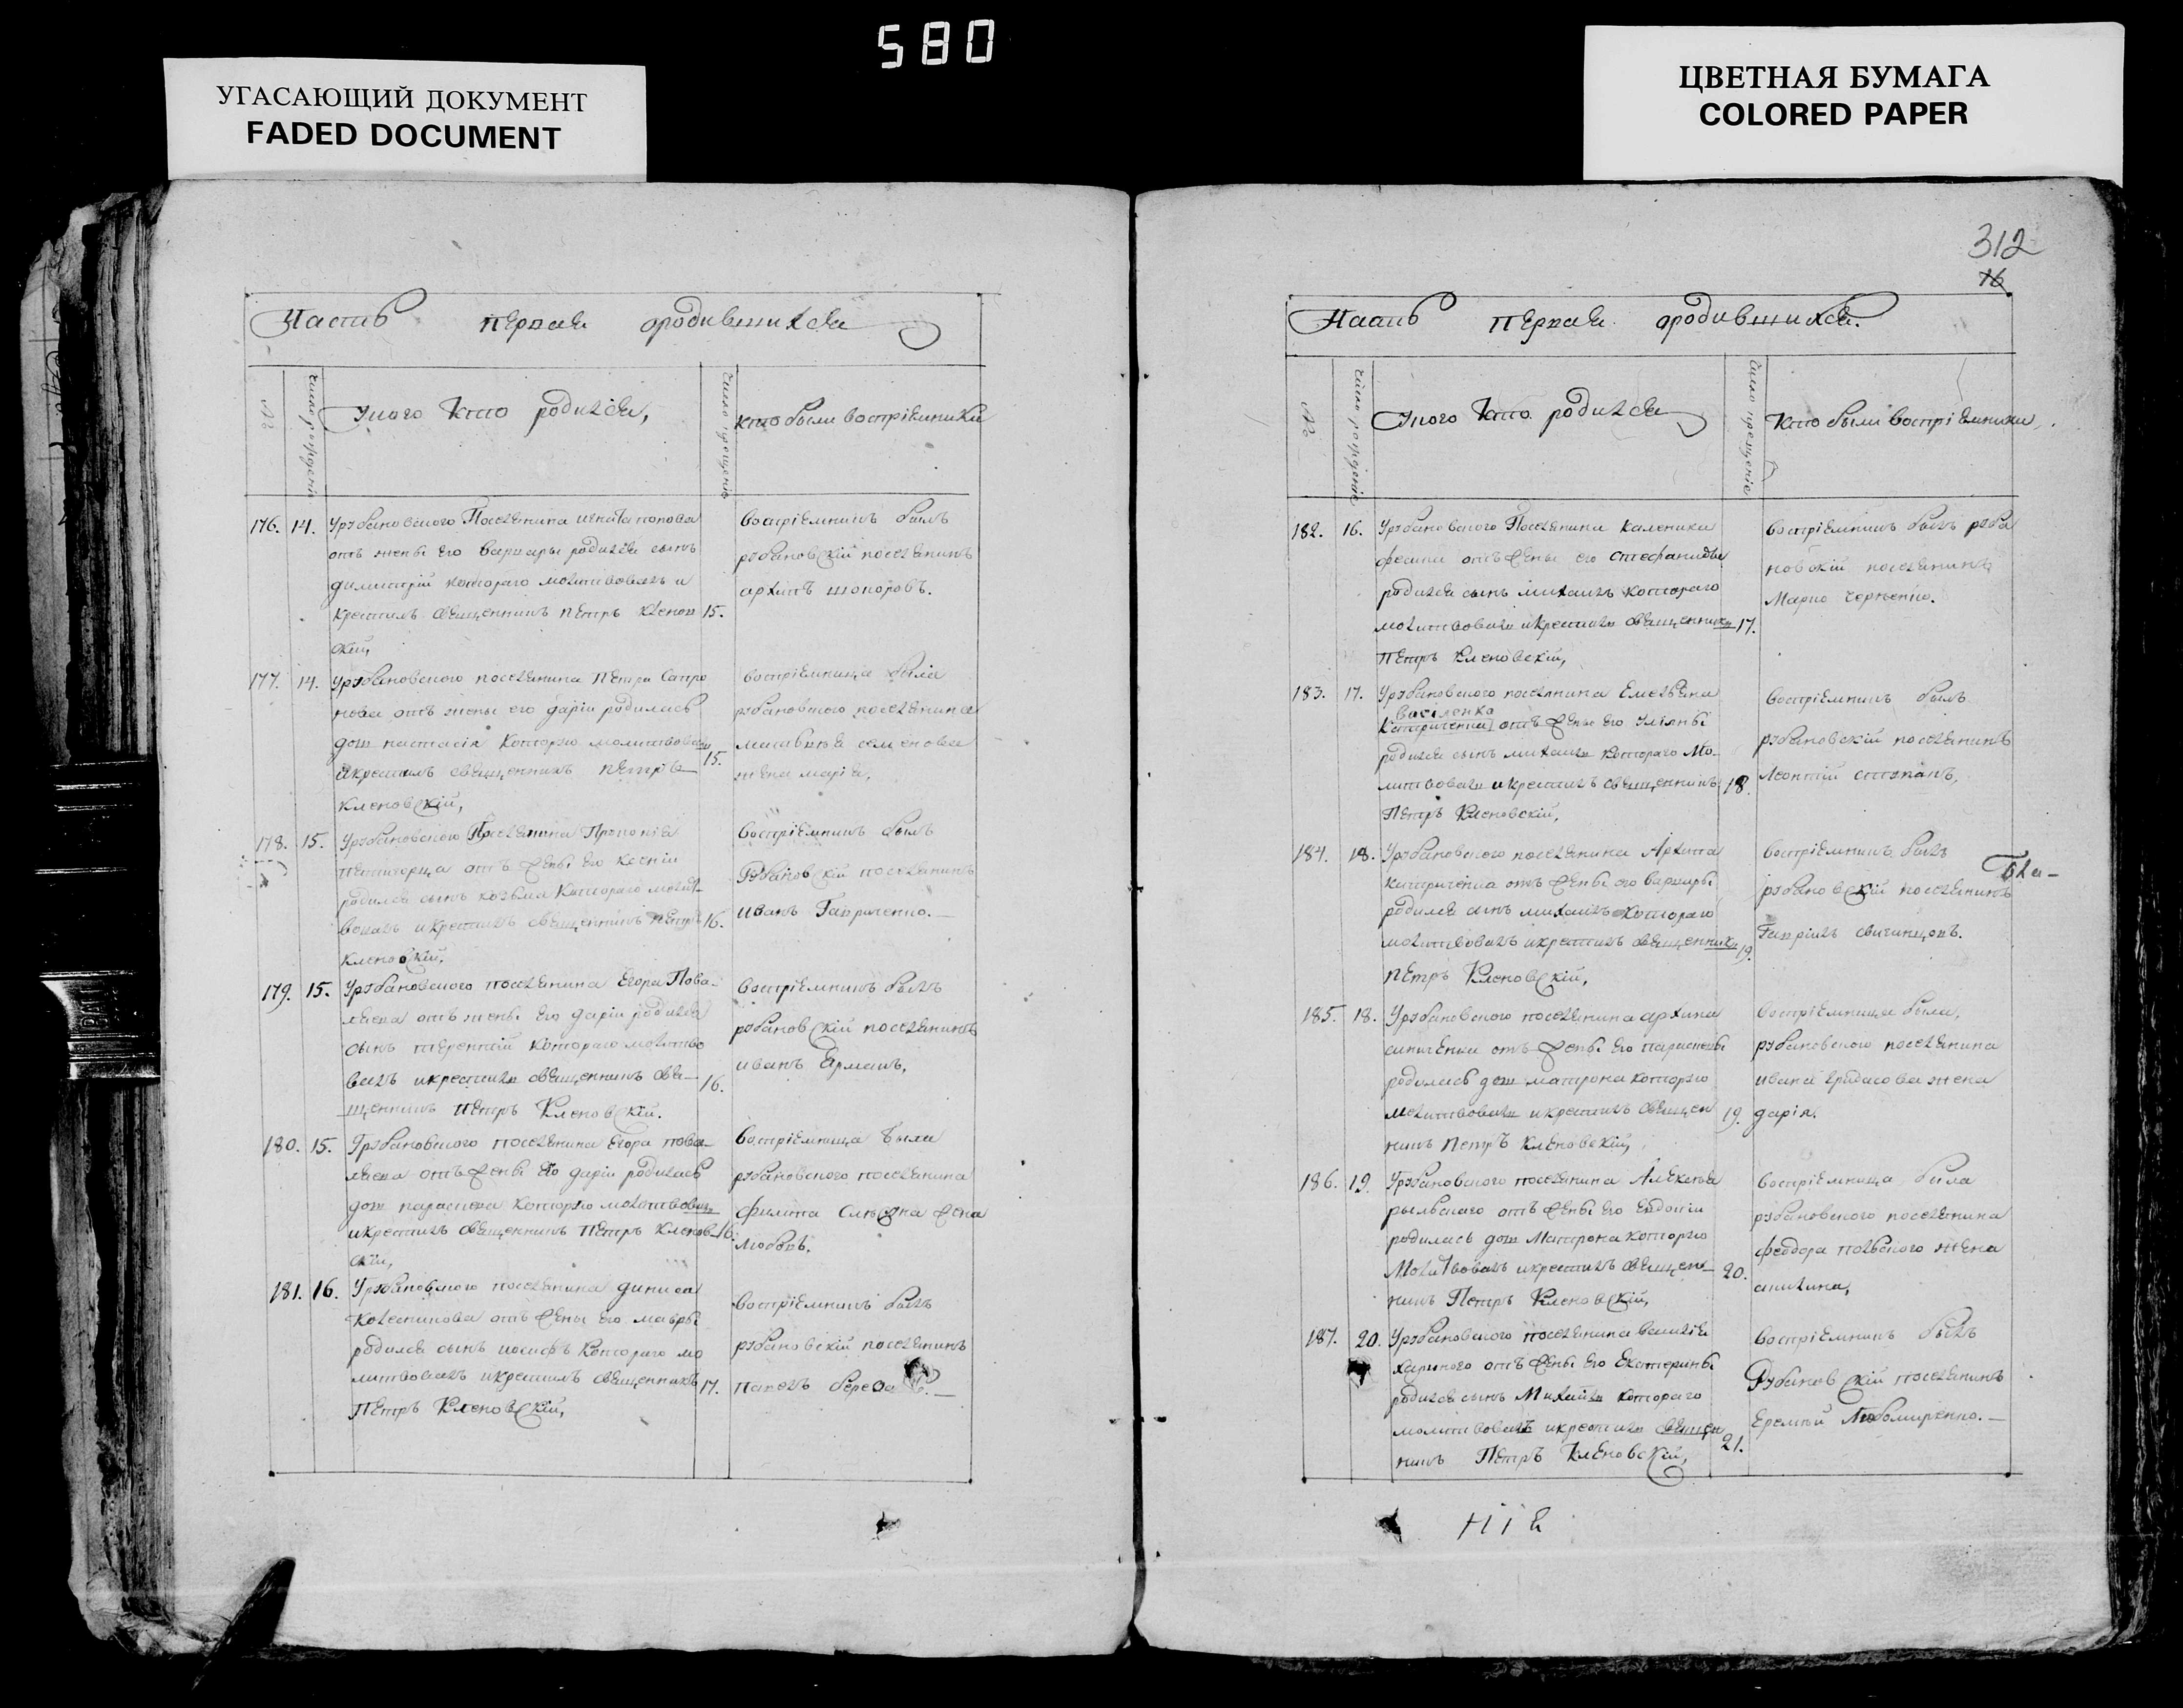 580
УГАСАЮЩИЙ ДОКУМЕНТ
FADED DOCUMENT
ЦВЕТНАЯ БУМАГА
COLORED PAPER
Часть первая ородившихся
№
число рождения
Укого кто родился,
число крещения
кто были восприемники
176. 14. Урубановского Поселянина Игната попова
отъ жены его варвары родился сынъ
димитрий котораго молитвовалъ и
крестилъ священникъ петръ кленов
ский,
15.
восприемникъ былъ
рубановский поселянинъ
архипъ шопоровъ.
177. 14. Урубановского поселянина петра Сапро
нова отъ жены его дарии родилась
дочь настасия которую молитвовалъ
икрестилъ священникъ петръ
кленовский,
15.
восприемница была
рубановского поселянина
матвея семенова
жена мария,
178. 15. Урубановского Поселянина Прокопия
отъ жены его ксении
родился сынъ козьма котораго молит
вовалъ икрестилъ священникъ петръ
кленовский.
16.
восприемникъ былъ
Рубановский поселянинъ
иванъ Гавриленко.
179. 15. Урубановского поселянина Егора Пова-
ляева отъ жены его дарии родился
сынъ терентий котораго молитво
валъ икрестилъ священникъ свя-
щенникъ петръ Кленовский.
16.
восприемникъ былъ
рубановский поселянинъ
иванъ Ермакъ,
180. 15. Урубановского поселянина Егора пова-
ляева отъ жены его дарии родилась
дочь параскева которую молитвовалъ
икрестилъ священникъ Петръ Кленов-
ский,
16.
восприемница была
рубановского поселянина
филипа жена
любовь.
181. 16. Урубановского поселянина дениса
колесникова отъ жены его мавры
родился сынъ иосифъ Котораго мо
литвовалъ икрестилъ священникъ
Петръ Кленовский,
17.
восприемникъ былъ
рубановский поселянинъ
павелъ
312
16
Часть первая ородившихся.
№
число рождение
Укого кто родился
число крещение
Кто были восприемники,
182. 16. Урубановского Поселянина каленика
отъ жены его стефаниды
родился сынъ михаилъ котораго
молитвовалъ икрестилъ священникъ
петръ Кленовский,
17.
восприемникъ былъ руба
новский поселянинъ
Марко черненко.
183. 17. Урубановского поселянина Емельяна
василенка
отъ жены его Улияны
родился сынъ михаилъ котораго мо-
литвовалъ икрестилъ священникъ
Петръ Кленовский,
18.
восприемникъ былъ
рубановский поселянинъ
Леонтий
184. 18. Урубановского поселянина Архипа
отъ жены его варвары
родился сынъ михаилъ котораго
молитвовалъ икрестилъ священникъ
петръ Кленовский,
19.
восприемникъ былъ
рубановский поселянинъ
Гаврилъ
185. 18. Урубановского поселянина архипа
отъ жены его парасковы
родилась дочь матрона которую
молитвовалъ икрестилъ священ
никъ петръ кленовский,
19.
восприемница была,
рубановского поселянина
ивана жена
дария.
186. 19. Урубановского поселянина Алексея
рыльского отъ жены его Евдокии
родилась дочь Матрона которую
Молитвовалъ икрестилъ священ-
никъ Петръ Кленовский,
20.
восприемница была
рубановского поселянина
феодора польского жена
акилина,
187. 20. Урубановского поселянина василия
отъ жены его Екатерины
родился сынъ Михаилъ котораго
молитвовалъ икрестилъ священ
никъ Петръ Кленовский,
21.
восприемникъ былъ
Рубановский поселянинъ
Еремей Любомиренко.